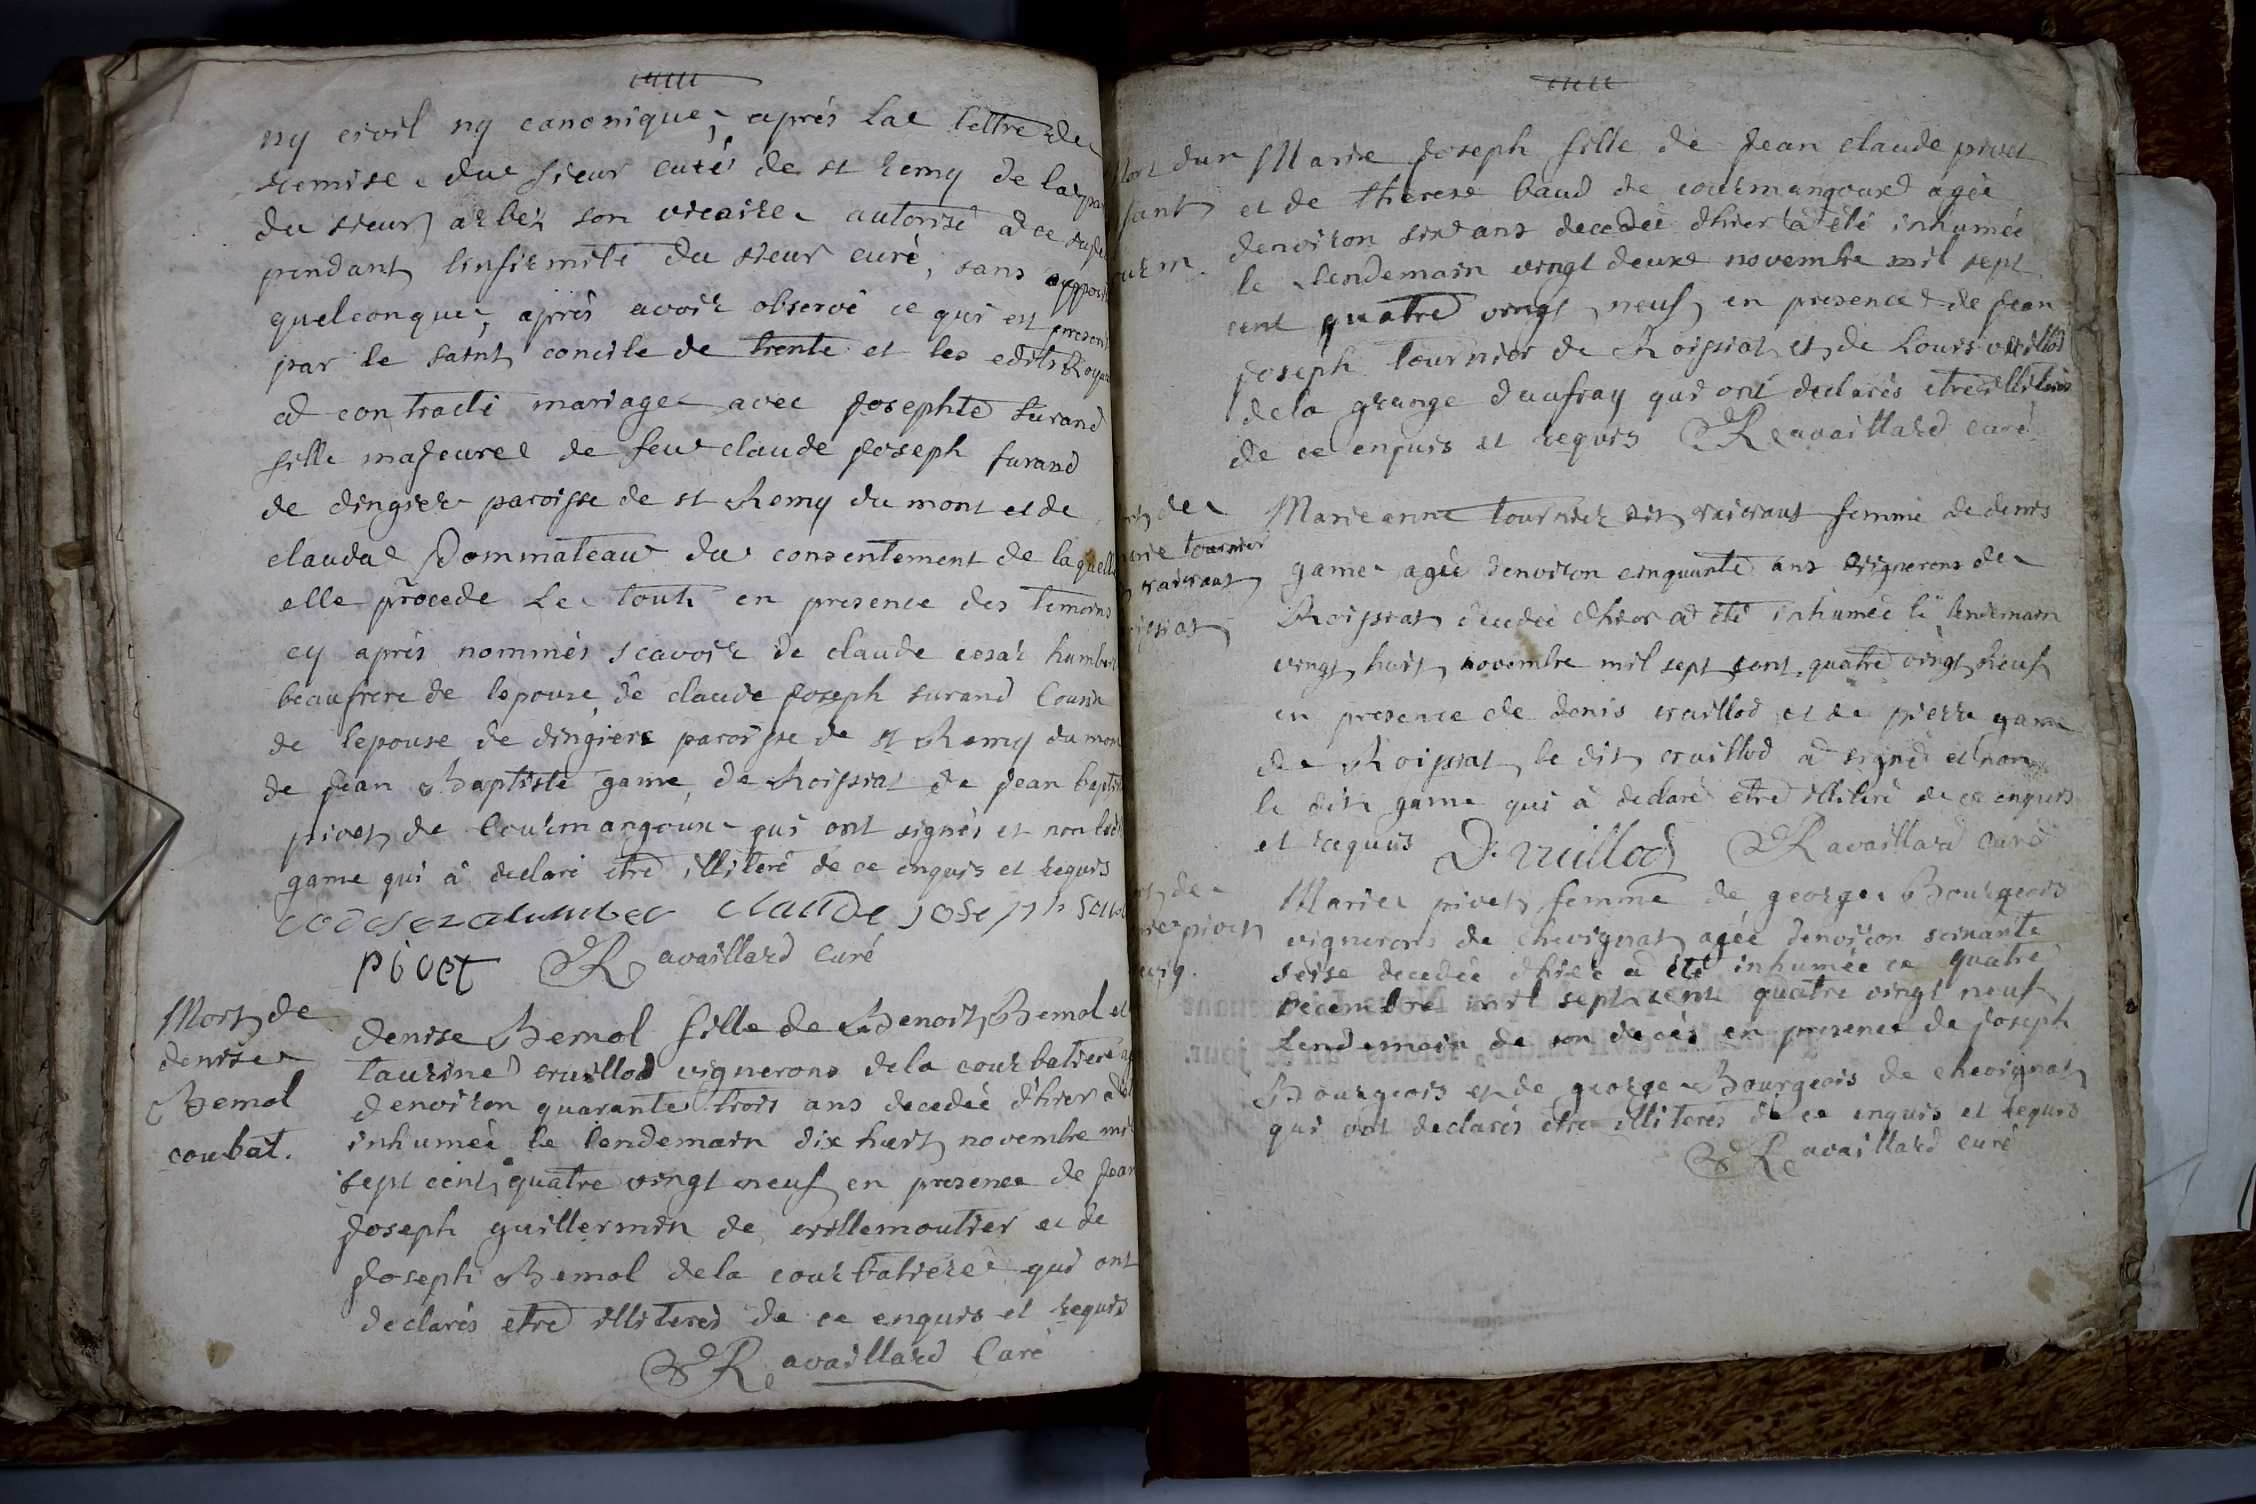 ny civil ny canonique, après lae lettre de
remise due sieur curé de st remy de la par
du sieur arbez son vicaire autorisé a ce sujet
pendant linfirmité du sieur curé, sans opposit
quelconque, après avoir observé ce qui est prescrit
par le saint concile de trente et les edits Royau
a contracté mariage avec josephte surand
fille majeure de feu claude joseph surand
de dingier paroisse de st Remy du mont et de
clauda Dommateau du consentement de laquelle
elle procede Le tout en presence des temoins
cy après nommés scavoir de claude cesar humbert
beaufrere de lepouse, de claude joseph surand Cousin
de lepouse de dingiere paroisse de st Remy du mon
de jean Baptiste game, de Roissiat de jean baptis
pivet de Courmangoux qui ont signés et non ledit
game qui à declaré etre illiteré de ce enquis et requis
claude joseph
pivet Ravaillard Curé
Mort de
denise
Bemol
coubat.
denise Bemol fille de Benoit Bemol et
taurine vuillod vignerons dela courbatiere
denviron quarante trois ans decedéé dhier a
inhumée le lendemain dix huit novembre mil
sept cent quatre vingt neuf en presence de jean
joseph guillermin de villemoutier et de
joseph Bemol dela courbatiere qui ont
declarés etre illiterés de ce enquis et requis
Ravaillard Curé
Mort dun
fant
curm.
Marie joseph fille de jean claude pivet
et de therese baud de courmangoux agée
denviron six ans decedéé dhier a été inhumée
le lendemain vingt deux novembre mil sept
cent quatre vingt neuf en presence de jean
joseph tournier de Roissiat et de Louis vuillod
dela grange daufray qui ont declarés etre illiterés
de ce enquis et requis Ravaillard curé
de
marie tournier
vaivraut
issiat
Marie anne tournier dit vaivraut femme de denis
game agée denviron cinquante ans vignerons de
Roissiat decedéé dhier a été inhumée le lendemain
vingt huit novembre mil sept cent quatre vingt neuf
en presence de denis vuillod et de pierre game
de Roissiat le dit vuillod a signé et non
le dit game qui à declaré etre illiteré de ce enquis
et requis D. vuillod Ravaillard curé
de
pivet
Marie pivet femme de george Bourgeois
vignerons de chevignat agée denviron soixante
seise decedéé dhier a été inhumée ce quatre
Decembre mil sept cent quatre vingt neuf
Lendemain de son decés en presence de joseph
Bourgeois et de george Bourgeois de chevignat
qui ont declarés etre illiterés de ce enquis et requis
Ravaillard curé